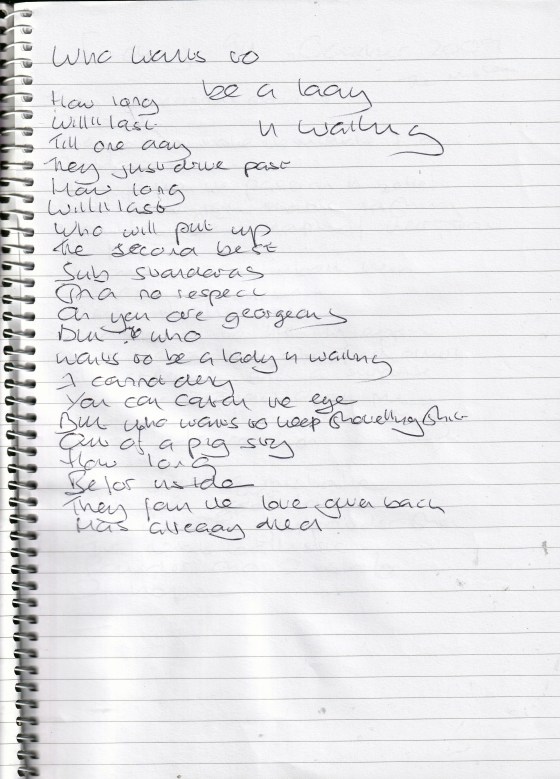 Who wants to
be a lady
n waiting
How long
Will it last
Till one day
They just drive past
How long
Will it last
Who will put up
The second best
Sub standards
And no respect
Oh you are georgeous
But who
wants to be a lady n waiting
I cannot deny
You can catch the eye
But who wants to keep shovelling shit
Out of a pig sty
How long
Befor inside
They find the love given back
Has already died